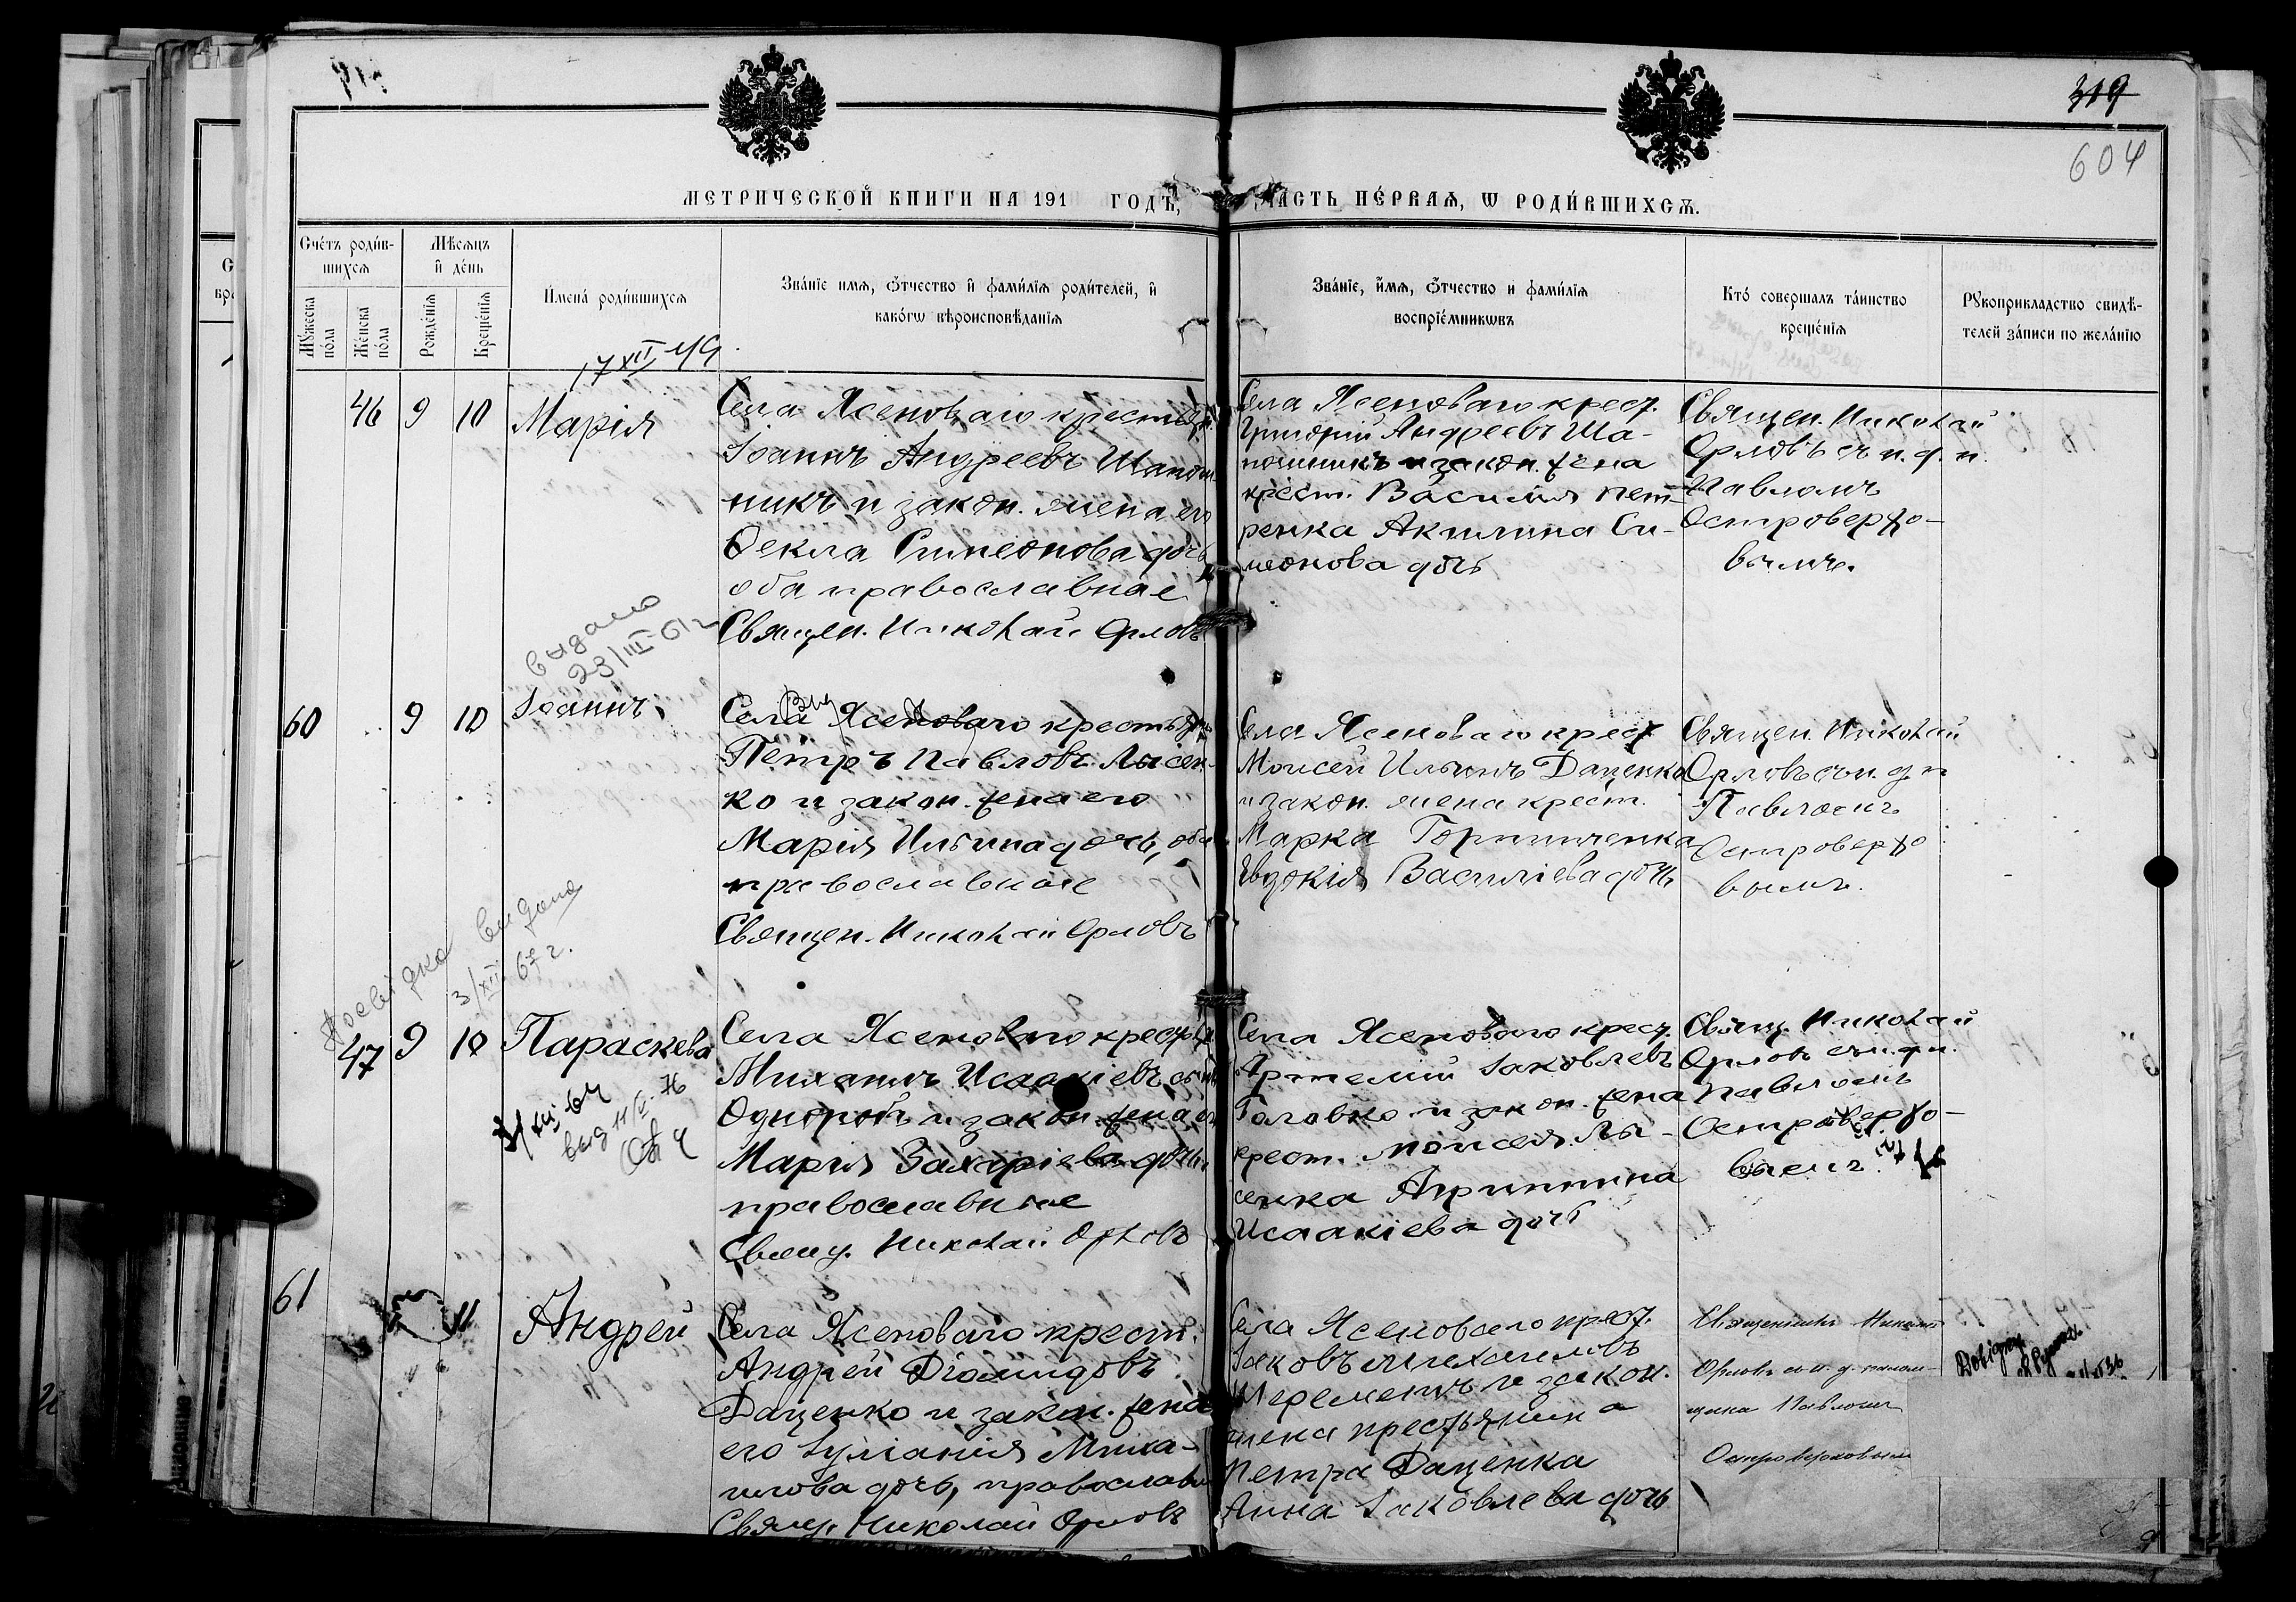 319
604
МЕТРИЧЕСКОЙ КНИГИ НА 191 ГОДЪ, ЧАСТЬ ПЕРВАЯ, Ѡ РОДИВШИХСЯ.
Счетъ родив-
шихся
Мужеска
пола
Женска
пола
Мѣсяцъ
и день
Рожденія
Крещенія
Имена родившихся
Званіе имя, отчество и фамилія родителей, и
какогѡ вѣроисповѣданія
Званіе, имя, отчество и фамилія
воспріемникѡвъ
Кто совершалъ таинство
крещенія
Рукоприкладство свидѣ-
телей записи по желанію
17 XII 49
46 9 10 Марія
Села Ясеноваго крестьян.
Іоаннъ Андреевъ Шапош
никъ и закон. жена его
Ѳекла Симеонова дочь
оба православные
Священ. Николай Орловъ
Села Ясеноваго крест.
Григорій Андреевъ Ша-
пошникъ и закон. жена
крест. Василія Пет-
ренка Акилина Си-
меонова дочь
Священ. Николай
Орловъ съ и. д. п.
Павломъ
Островерхо-
вымъ.
выдано
23/III-61г
60 9 10 Іоаннъ
Села Ясеноваго крестьян
Петръ Павловъ Лысен-
ко и закон. жена его
Марія Ильина дочь, оба
православные
Священ. Николай Орловъ
Села Ясеноваго крест
Моисей Ильинъ Даценко
и закон. жена крест.
Марка Горпинченка
Евдокія Василіева дочь
Священ. Николай
Орловъ съ и. д. п
Павломъ
Островерхо
вымъ.
Довідка видана
3/XII 67г.
47 9 10 Параскева
Села Ясеноваго крест
Михаилъ Исаакіевъ сынъ
и закон. жена его
Марія Захаріева дочь,
православные
Свящ. Николай Орловъ
Села Ясеноваго крест.
Артемій Іаковлевъ
Головко и закон. жена
крест. Моисея Лы-
сенка Агриппина
Исаакіева дочь
Свящ. Николай
Орловъ съ и. д. п.
Павломъ
Островерхо-
вымъ.
61 11 Андрей
Села Ясеноваго крест.
Андрей Діомидовъ
Даценко и закон. жена
его Іуліанія Михаи-
лова дочь, православн
Свящ. Николай Орловъ
Села Ясеноваго крест.
Іаковъ Михаиловъ
и закон.
жена крестьянина
Петра Даценка
Анна Іаковлева дочь
Священникъ Николай
Орловъ съ и. д. псалом-
щика Павломъ
Островерховымъ